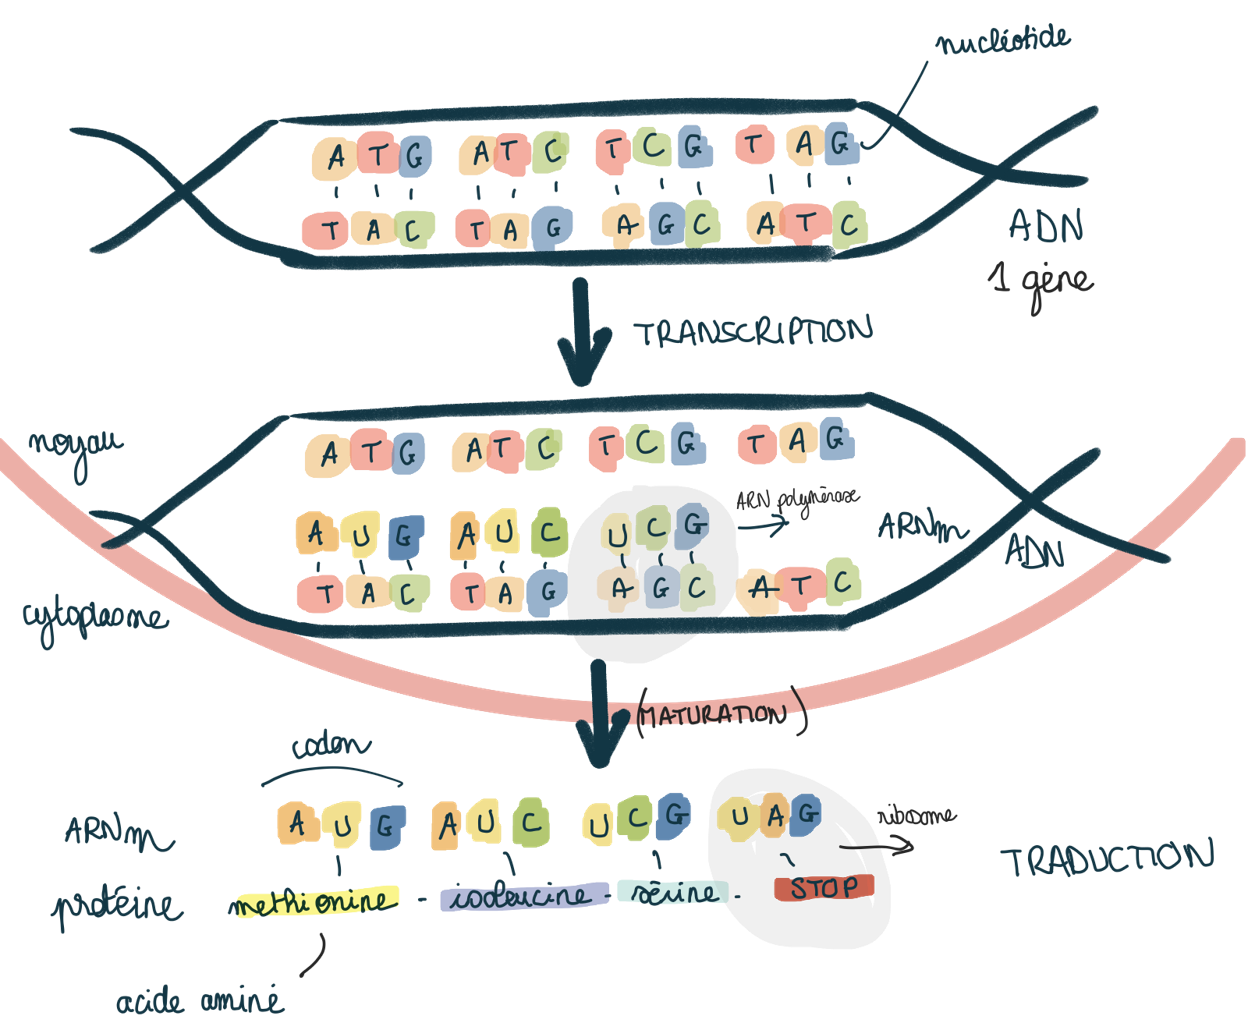 nucléotide
A T G A T C T C G T A G
T A C T A G A G C A T C
ADN
1 gène
TRANSCRIPTION
noyau
A T G A T C T C G T A G
ARN polymérase
A U G A U C U C G
ARNm
T A C T A G A G C A T C
ADN
cytoplasme
(MATURATION)
codon
A U G A U C U C G U A G
ribosome
ARNm
TRADUCTION
protéine
methionine - isoleucine - sérine - STOP
acide aminé